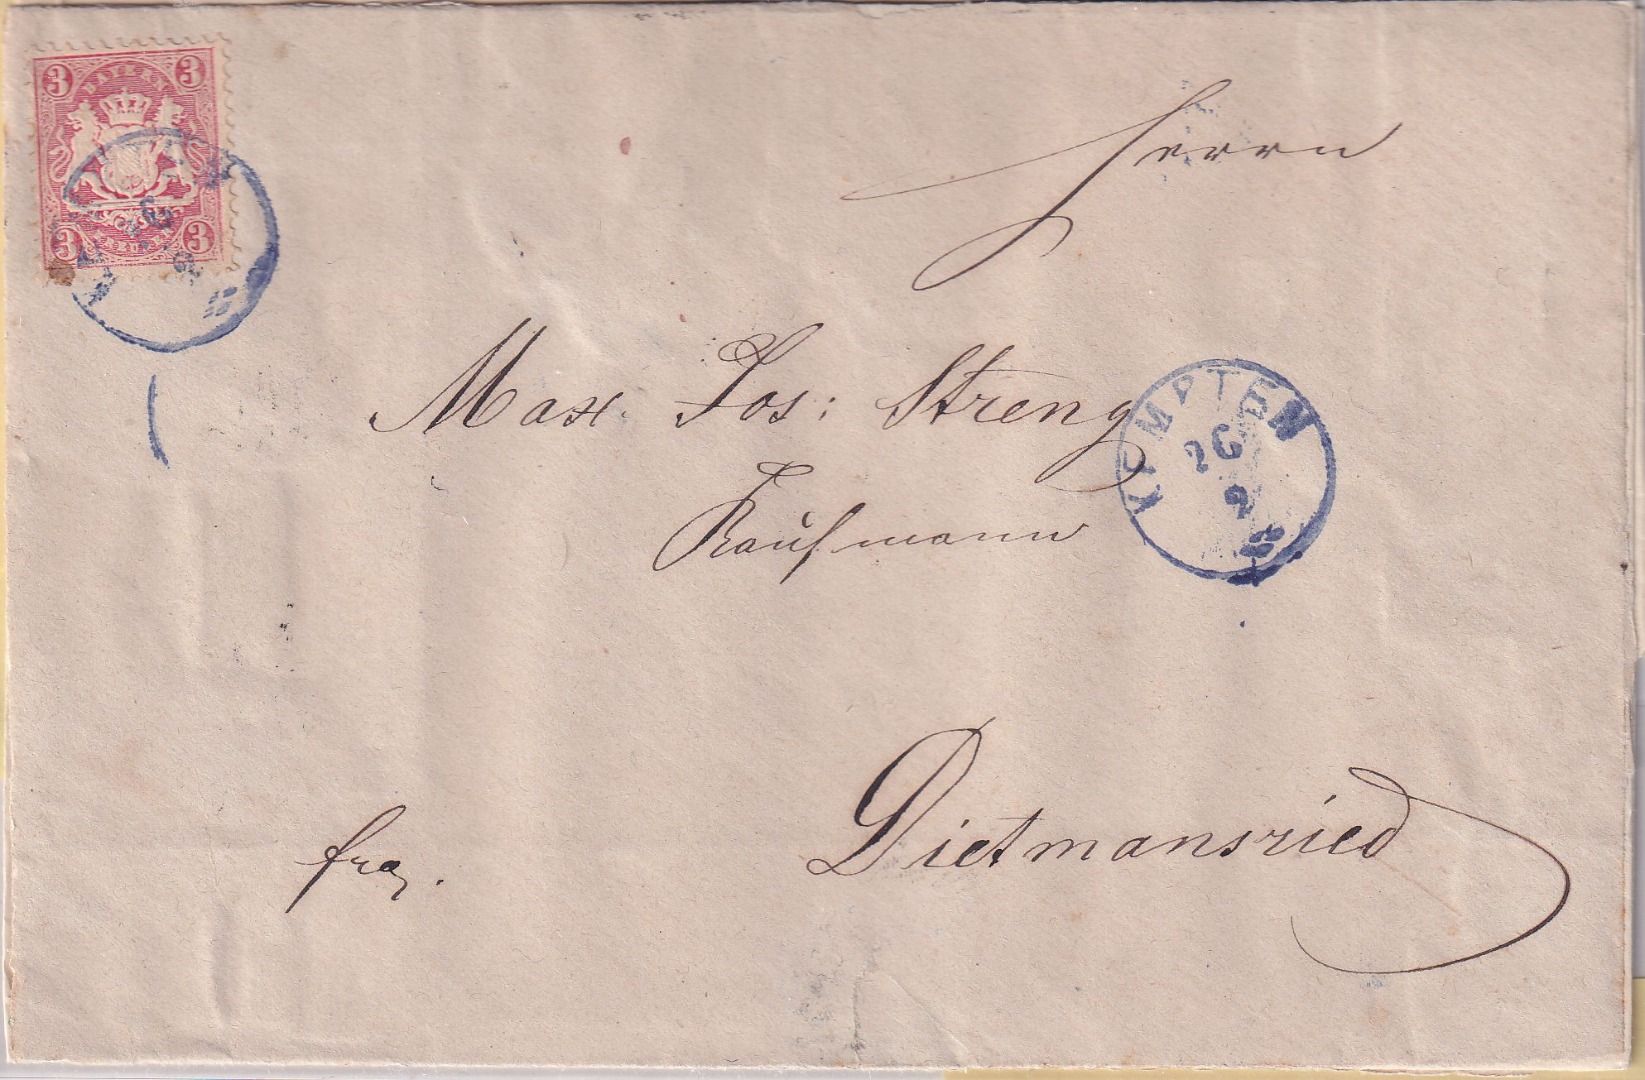 3 3
BAYERN
3 3
KREUZER
Herrn
Max Jos: Streng
Kaufmann
KEMPTEN
26
2
Dietmansried